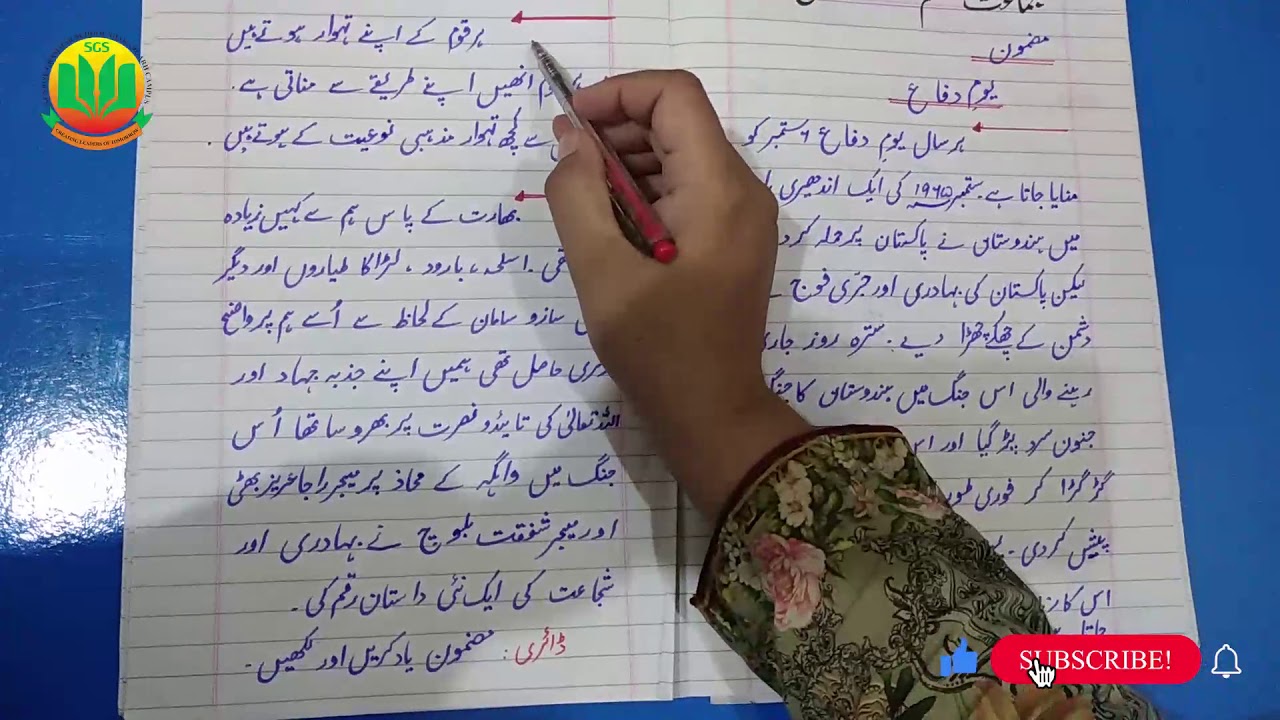 مضمون
یومِ دفاع
ہر سال یومِ دفاع ۶ ستمبر کو
منایا جاتا ہے۔ ستمبر ۱۹۶۵ کی ایک اندھیری
میں ہندوستان نے پاکستان پر حملہ کر د
لیکن پاکستان کی بہادری اور جرّی فوج
دشمن کے چھکے چھڑا دیے۔ سترہ روز جاری
رہنے والی اس جنگ میں ہندوستان کا جنگ
جنون سرد پڑ گیا اور اس
گڑ گڑا کر فوری طور
پیش کردی۔
اس کا رن
جاتا
ہر قوم کے اپنے تہوار ہوتے ہیں
انھیں اپنے طریقے سے مناتی ہے۔
سے کچھ تہوار مذہبی نوعیت کے ہوتے ہیں۔
بھارت کے پاس ہم سے کہیں زیادہ
تھی۔ اسلحہ، بارود، لڑاکا طیاروں اور دیگر
سازو سامان کے لحاظ سے اُسے ہم پر واضح
برتری حاصل تھی ہمیں اپنے جذبہ جہاد اور
اللہ تعالیٰ کی تائید و نصرت پر بھروسا تھا اُس
جنگ میں واہگہ کے محاذ پر میجر راجا عزیز بھٹی
اور میجر شفقت بلوچ نے بہادری اور
شجاعت کی ایک نئی داستان رقم کی۔
ڈائری: مضمون یاد کریں اور لکھیں۔
SGS
CREATING LEADERS OF TOMORROW
SUBSCRIBE!